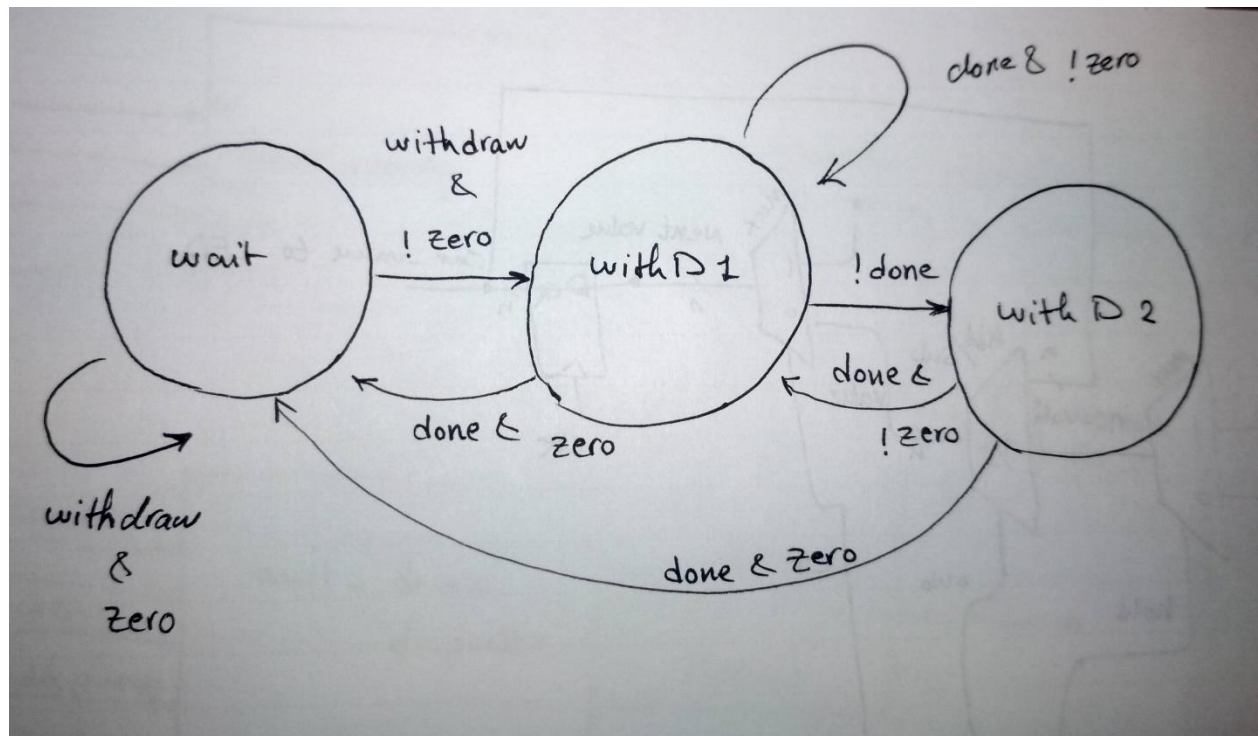 done & !zero
withdraw
&
! zero
wait
withD1
!done
withD2
done &
!zero
done & zero
withdraw
&
zero
done & zero